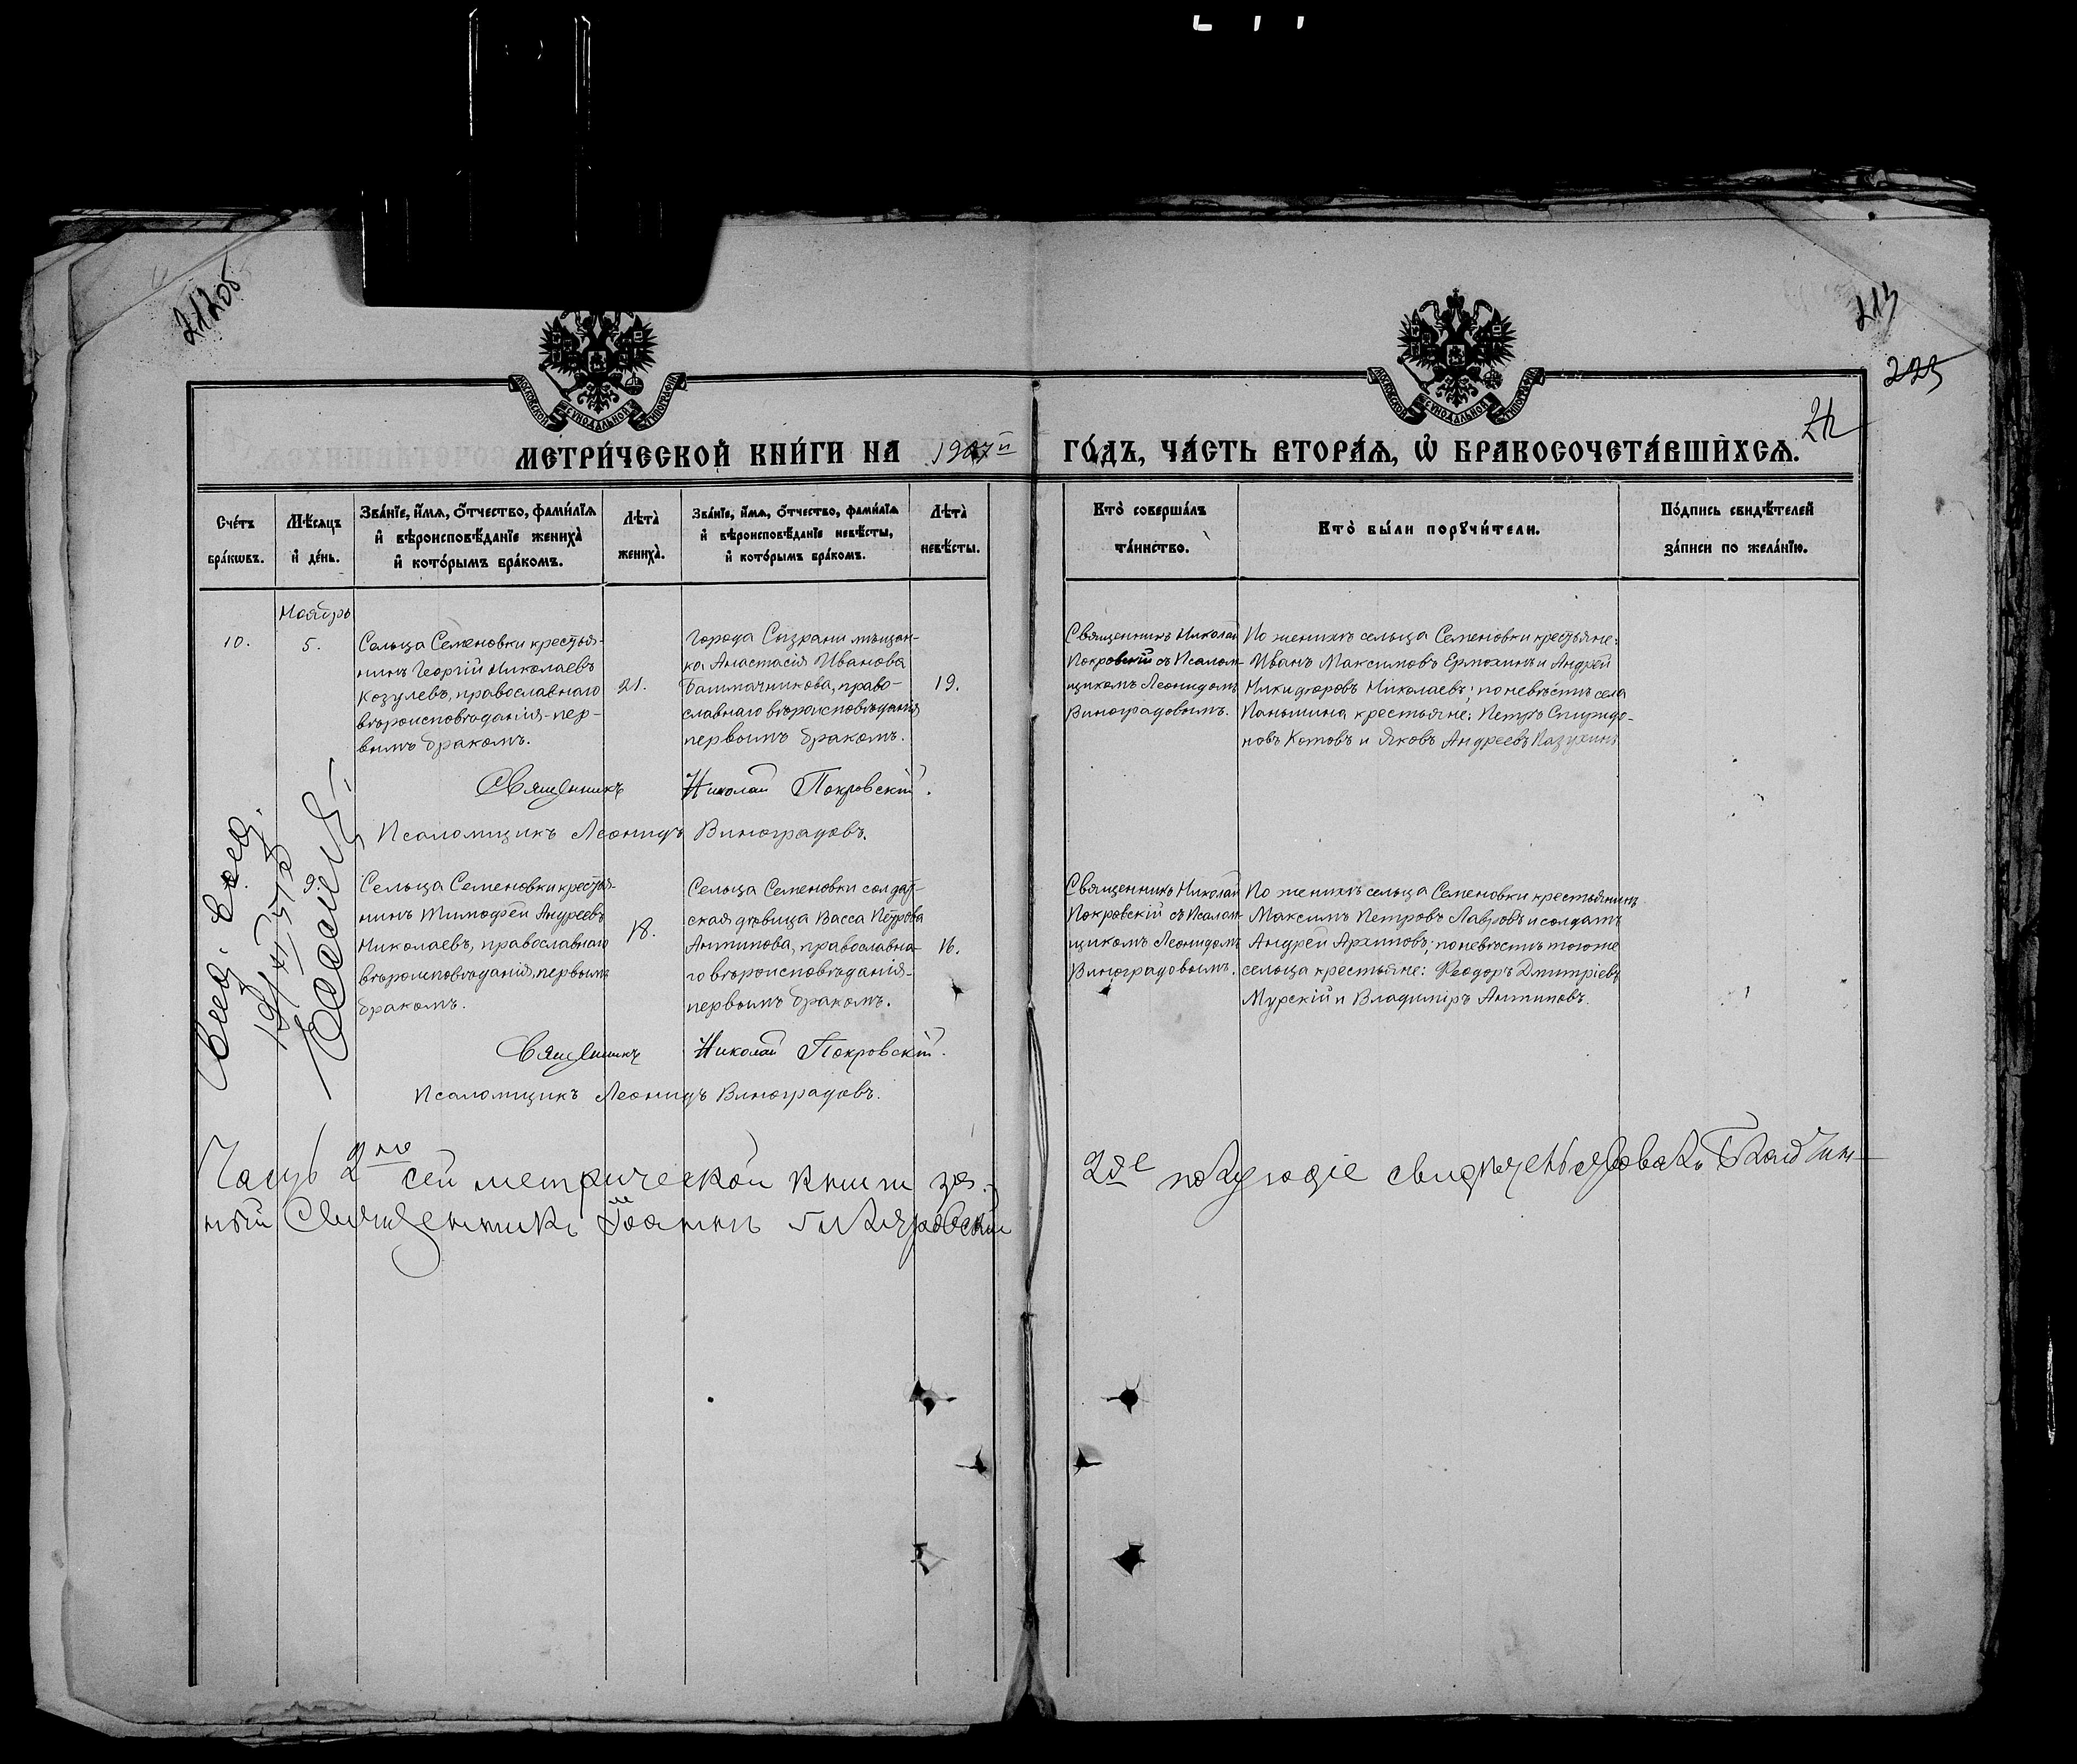 212об
213
223
МОСКОВСКОЙ СѴНОДАЛЬНОЙ ТИПОГРАФІИ
МОСКОВСКОЙ СѴНОДАЛЬНОЙ ТИПОГРАФІИ
МЕТРИ́ЧЕСКОЙ КНИ́ГИ НА 1907й ГО́ДЪ, ЧА́СТЬ ВТОРА́Я, Ѡ҆ БРАКОСОЧЕТА́ВШИХСЯ.
Сче́тъ бра́кѡвъ.
Мѣ́сяцъ и҆ де́нь.
Зва́нїе, и҆́мя, ѻ҆́тчество, фами́лїя
и҆ вѣроисповѣ́данїе жениха̀
и҆ кото́рымъ бра́комъ.
Лѣта̀ жениха̀.
Зва́нїе, и҆́мя, ѻ҆́тчество, фами́лїя
и҆ вѣроисповѣ́данїе невѣ́сты,
и҆ кото́рымъ бра́комъ.
Лѣта̀ невѣ́сты.
Кто̀ соверша́лъ
та́инство.
Кто̀ бы́ли порꙋчи́тели.
По́дпись свидѣ́телей
за́писи по жела́нїю.
Ноябрь
10.
5.
Сельца Семеновки крестья-
нинъ Георгій Николаевъ
Козулевъ, православнаго
вѣроисповѣданія-пер-
вымъ бракомъ.
21.
Города Сызрани мѣщан-
ка Анастасія Иванова
Башмачникова, право-
славнаго вѣроисповѣданія
первымъ бракомъ.
19.
Священникъ Николай
Покровскій съ Псалом-
щикомъ Леонидомъ
Виноградовымъ.
По женихѣ сельца Семеновки крестьяне:
Иванъ Максимовъ Ермохинъ и Андрей
Никифоровъ Николаевъ; по невѣстѣ села
Паньшина крестьяне: Петръ Спиридо-
новъ Котовъ и Яковъ Андреевъ Пазухинъ
Священникъ Николай Покровскій.
Псаломщикъ Леонидъ Виноградовъ.
9.
Сельца Семеновки крестья-
нинъ Тимофей Андреевъ
Николаевъ, православнаго
вѣроисповѣданія, первымъ
бракомъ.
18.
Сельца Семеновки солдат-
ская дѣвица Васса Петрова
Антипова, православна-
го вѣроисповѣданія-
первымъ бракомъ.
16.
Священникъ Николай
Покровскій съ Псалом-
щикомъ Леонидомъ
Виноградовымъ.
По женихѣ сельца Семеновки крестьянинъ
Максимъ Петровъ Лавровъ и солдатъ
Андрей Архиповъ; по невѣстѣ тогоже
сельца крестьяне: Феодоръ Дмитріевъ
Мурскій и Владиміръ Антиповъ.
Священникъ Николай Покровскій.
Псаломщикъ Леонидъ Виноградовъ.
Часть 2ую сей метрической книги за 2ое полугодіе свидѣтельствовалъ Благочин-
ный Священникъ Іоаннъ